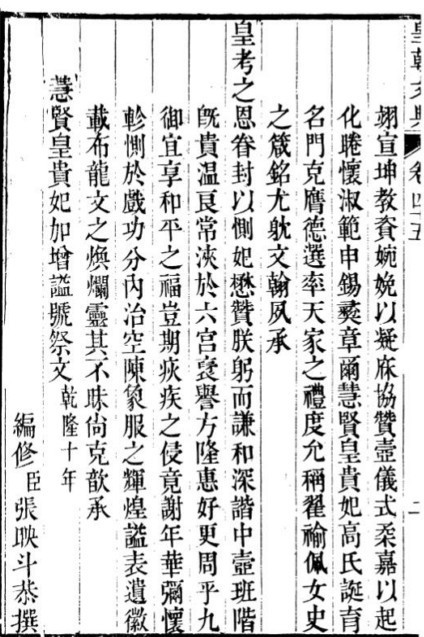 皇朝文典
卷四十五
二
翊宣坤教賚婉娩以凝庥協贊壼儀式柔嘉以起
化睠懷淑範申錫彝章爾慧賢皇貴妃高氏誕育
名門克膺德選率天家之禮度允稱翟褕佩女史
之箴銘尤躭文翰夙承
皇考之恩眷封以側妃懋贊朕躬而謙和深諧中壼班階
旣貴溫良常浹於六宮襃譽方隆惠好更周乎九
御宜享和平之福豈期疢疾之侵竟謝年華彌懷
軫惻於戲功分內治空陳象服之輝煌謚表遺徽
載布龍文之煥爛靈其不昧尙克歆承
慧賢皇貴妃加增謚號祭文乾隆十年
編修臣張映斗恭撰